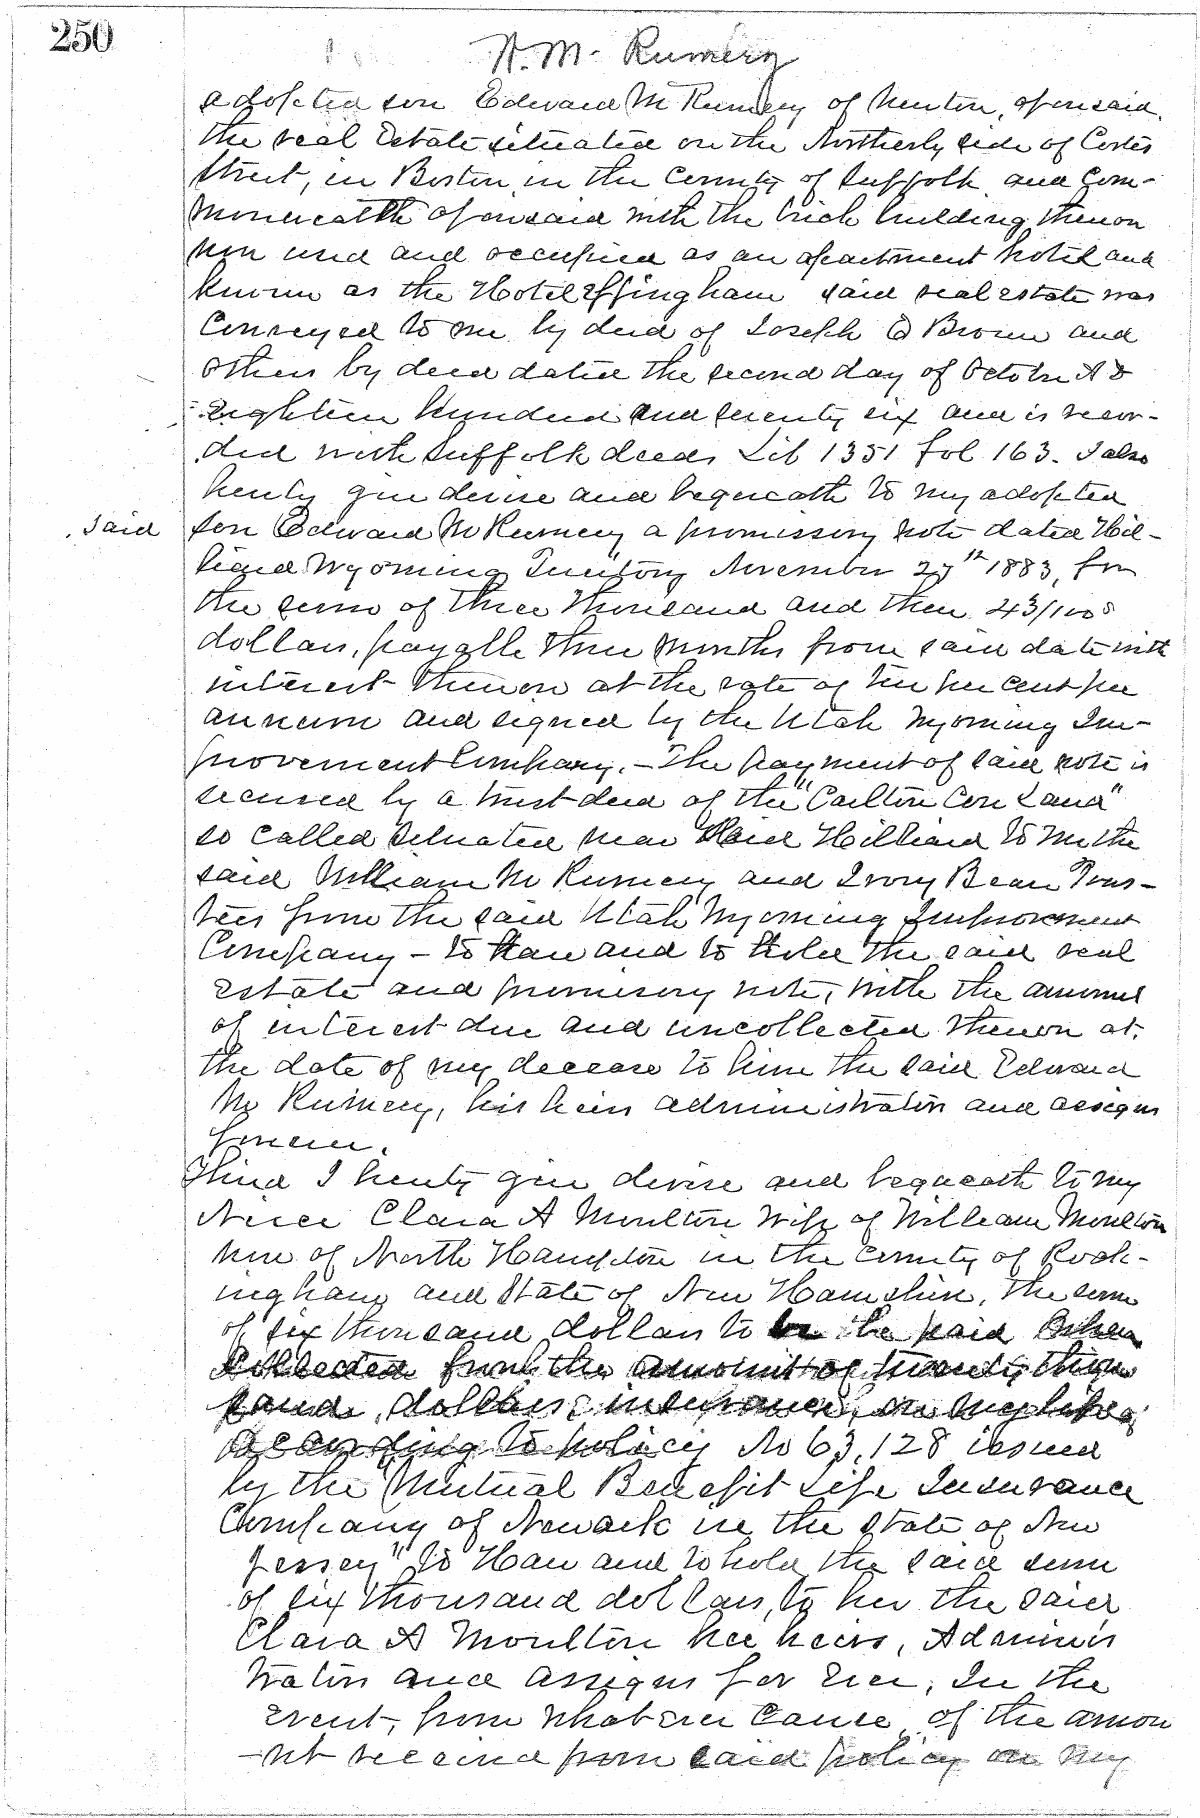 250
W. M. Rumery
adopted son Edward M Rumery of Newton, aforesaid,
the real Estate situated on the Northerly side of Cortes
Street, in Boston in the County of Suffolk and Com-
monwealth aforesaid with the brick building thereon
now used and occupied as an apartment hotel and
known as the Hotel Effingham said real estate was
Conveyed to me by deed of Joseph Brown and
others by deed dated the second day of October A D
Eighteen hundred and seventy six and is recor-
ded with Suffolk deeds Lib 1351 fol 163. I also
hereby give devise and bequeath to my adopted
said
son Edward M Rumery a promissory note dated Hil-
liard Wyoming Territory November 27th 1883, for
the sum of three thousand and three 43/100s
dollars, payable three months from said date with
interest thereon at the rate of ten per cent per
annum and signed by the Utah Wyoming Im-
provement Company. - The payment of said note is
secured by a trust deed of the "Carlton Land"
so called situated near said Hilliard to me the
said William M Rumery and Ivory Bean Trus-
tees from the said Utah Wyoming Improvement
Company - to Have and to Hold the said real
Estate and promissory note, with the amount
of interest due and uncollected thereon at
the date of my decease to him the said Edward
M Rumery, his heirs administrators and assigns
forever.
Third I hereby give devise and bequeath to my
Niece Clara A Moulton Wife of William Moulton
now of North Hampton in the County of Rock-
ingham and State of New Hampshire, the sum
of six thousand dollars to be paid when
Collected from the amount of twenty thou
sand dollars, insurance, on my life
according to policy No 63,128 issued
by the "Mutual Benefit Life Insurance
Company of Newark in the State of New
Jersey" to Have and to hold the said sum
of six thousand dollars, to her the said
Clara A Moulton her heirs, Adminis
trators and assigns for ever, In the
Event, from whatever Cause, of the amou
-nt received from said policy on my